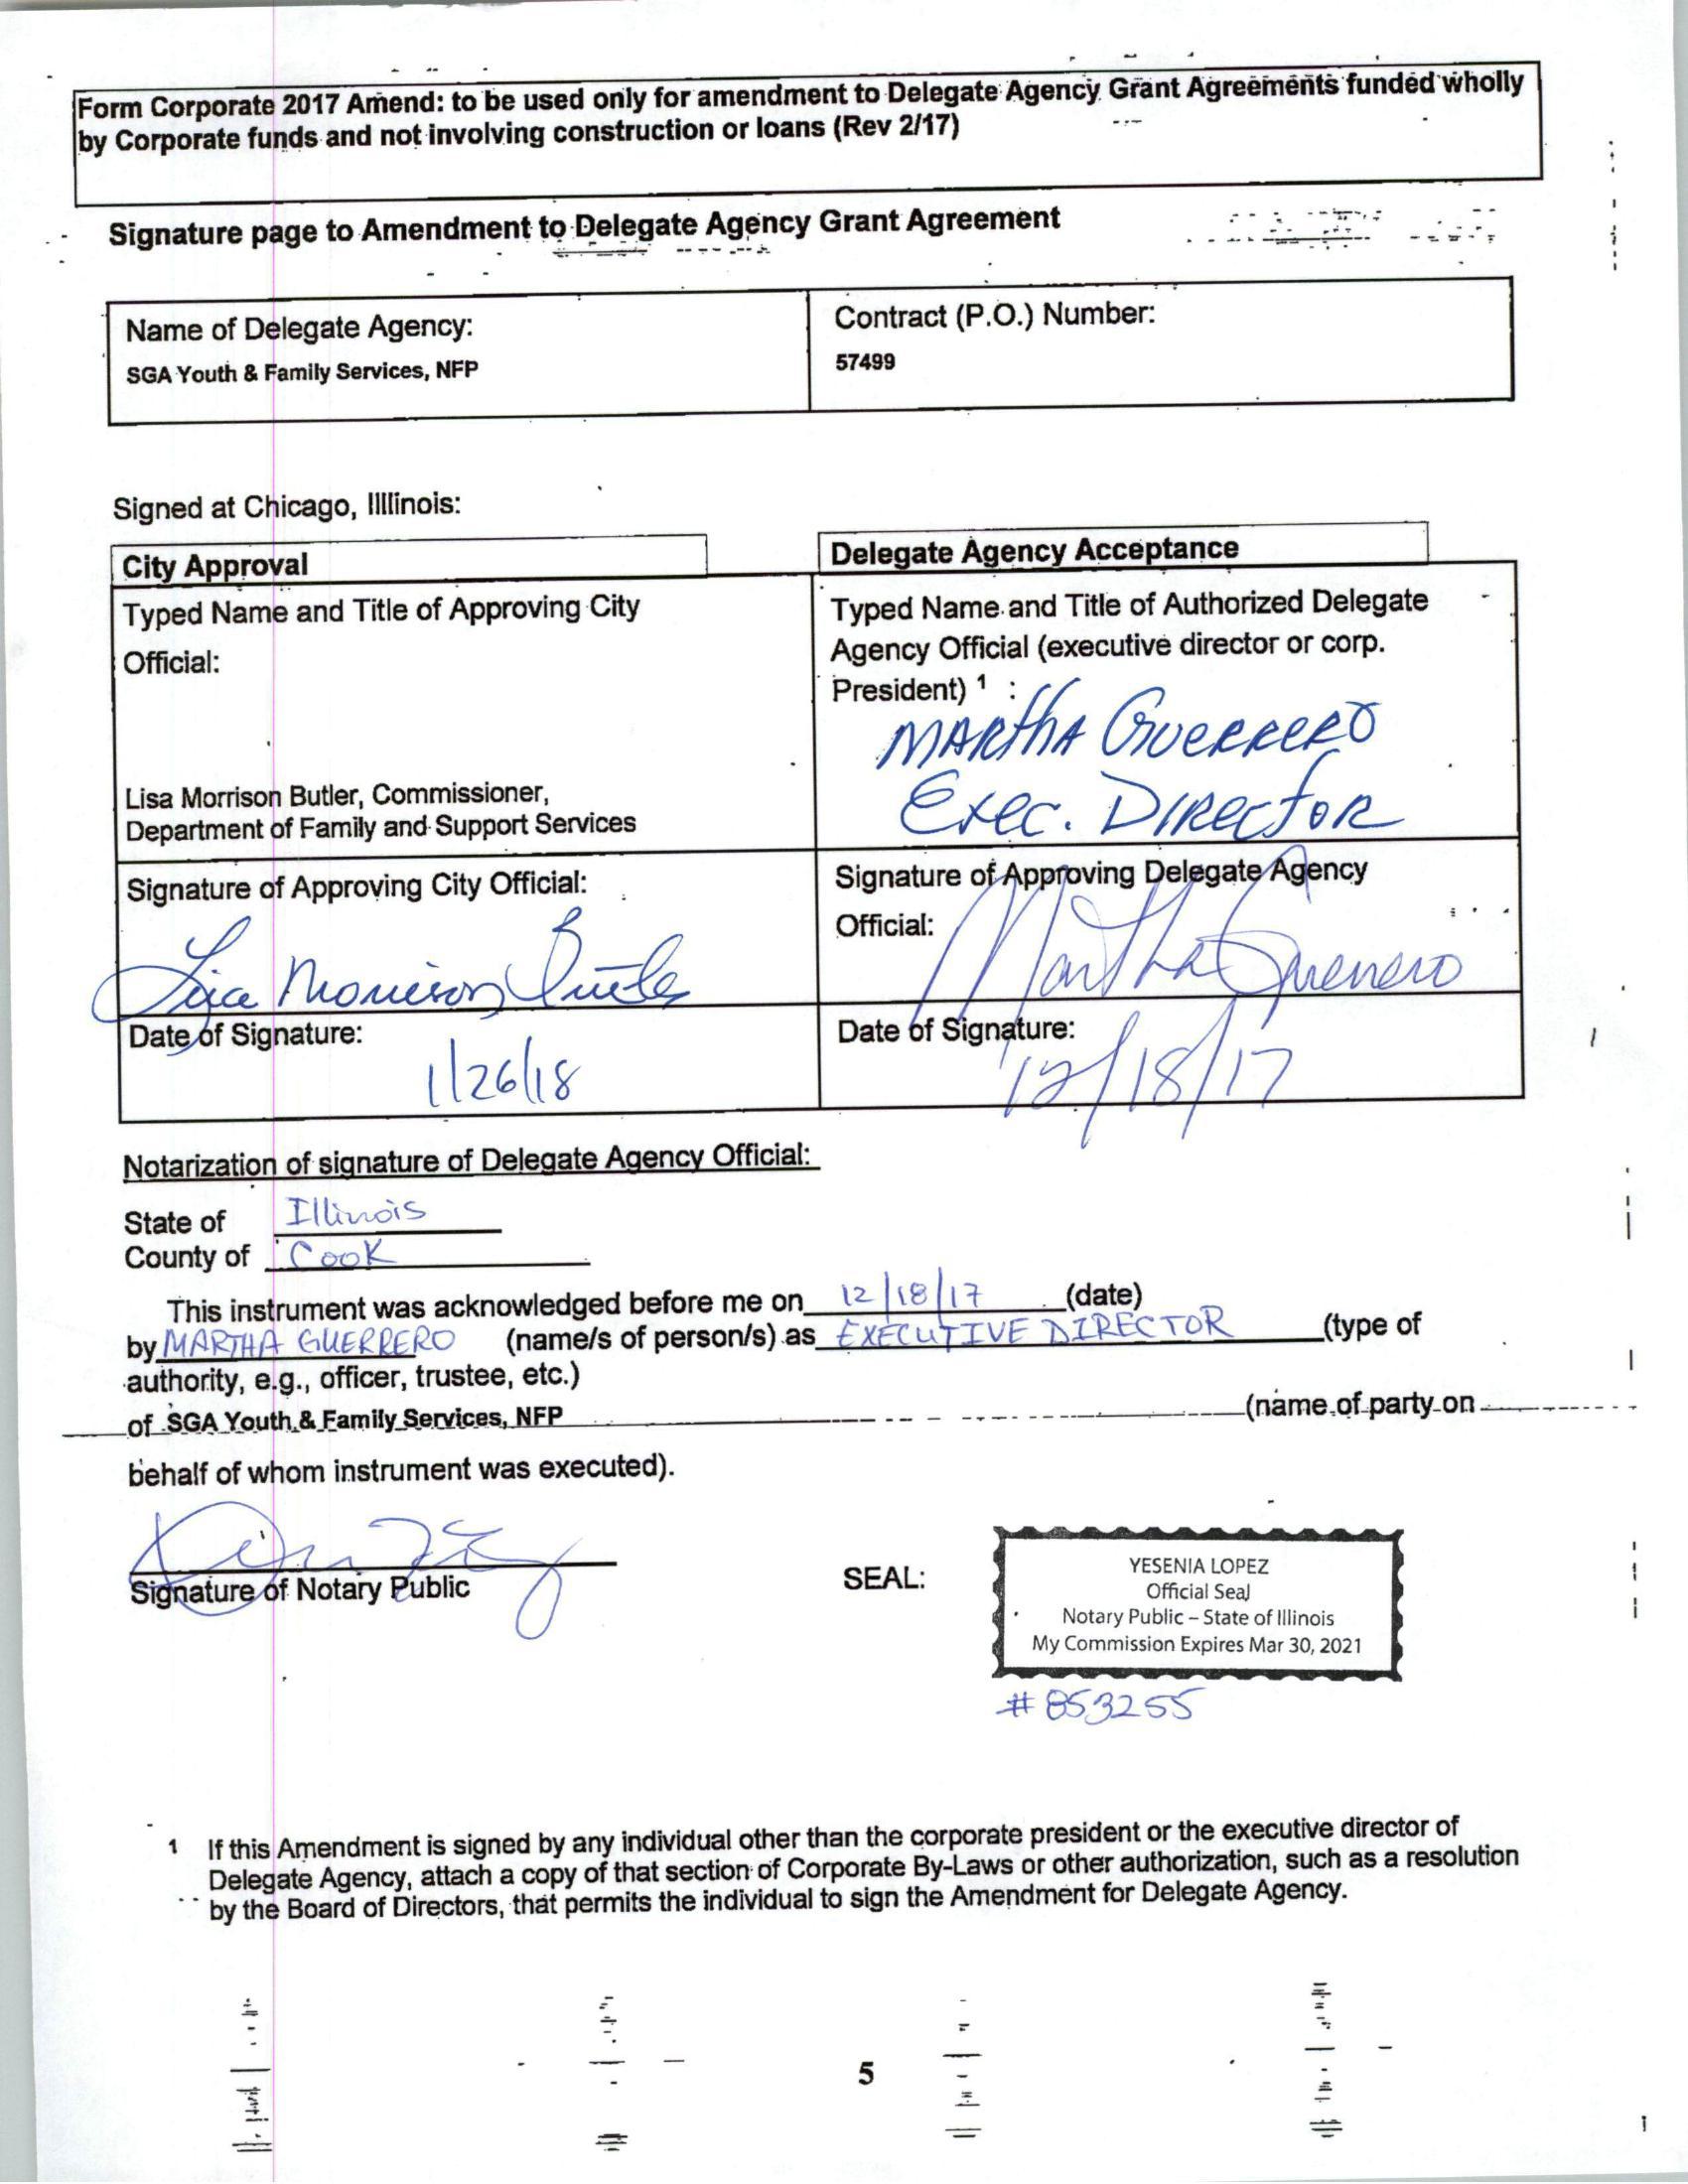 Form Corporate 2017 Amend: to be used only for amendment to Delegate Agency Grant Agreements funded wholly
by Corporate funds and not involving construction or loans (Rev 2/17)
Signature page to Amendment to Delegate Agency Grant Agreement
Name of Delegate Agency:
SGA Youth & Family Services, NFP
Contract (P.O.) Number:
57499
Signed at Chicago, Illlinois:
City Approval
Typed Name and Title of Approving City
Official:
Lisa Morrison Butler, Commissioner,
Department of Family and Support Services
Signature of Approving City Official:
Lisa Morrison Butler
Date of Signature:
1/26/18
Delegate Agency Acceptance
Typed Name and Title of Authorized Delegate
Agency Official (executive director or corp.
President) 1 :
MARthA GUERRERO
Exec. DIRECtOR
Signature of Approving Delegate Agency
Official:
Martha Guerrero
Date of Signature:
12/18/17
Notarization of signature of Delegate Agency Official:
State of Illinois
County of Cook
This instrument was acknowledged before me on 12/18/17 (date)
by MARTHA GUERRERO (name/s of person/s) as EXECUTIVE DIRECTOR (type of
authority, e.g., officer, trustee, etc.)
of SGA Youth & Family Services, NFP (name of party on
behalf of whom instrument was executed).
Signature of Notary Public
SEAL:
YESENIA LOPEZ
Official Seal
Notary Public – State of Illinois
My Commission Expires Mar 30, 2021
# 853255
1 If this Amendment is signed by any individual other than the corporate president or the executive director of
Delegate Agency, attach a copy of that section of Corporate By-Laws or other authorization, such as a resolution
by the Board of Directors, that permits the individual to sign the Amendment for Delegate Agency.
5